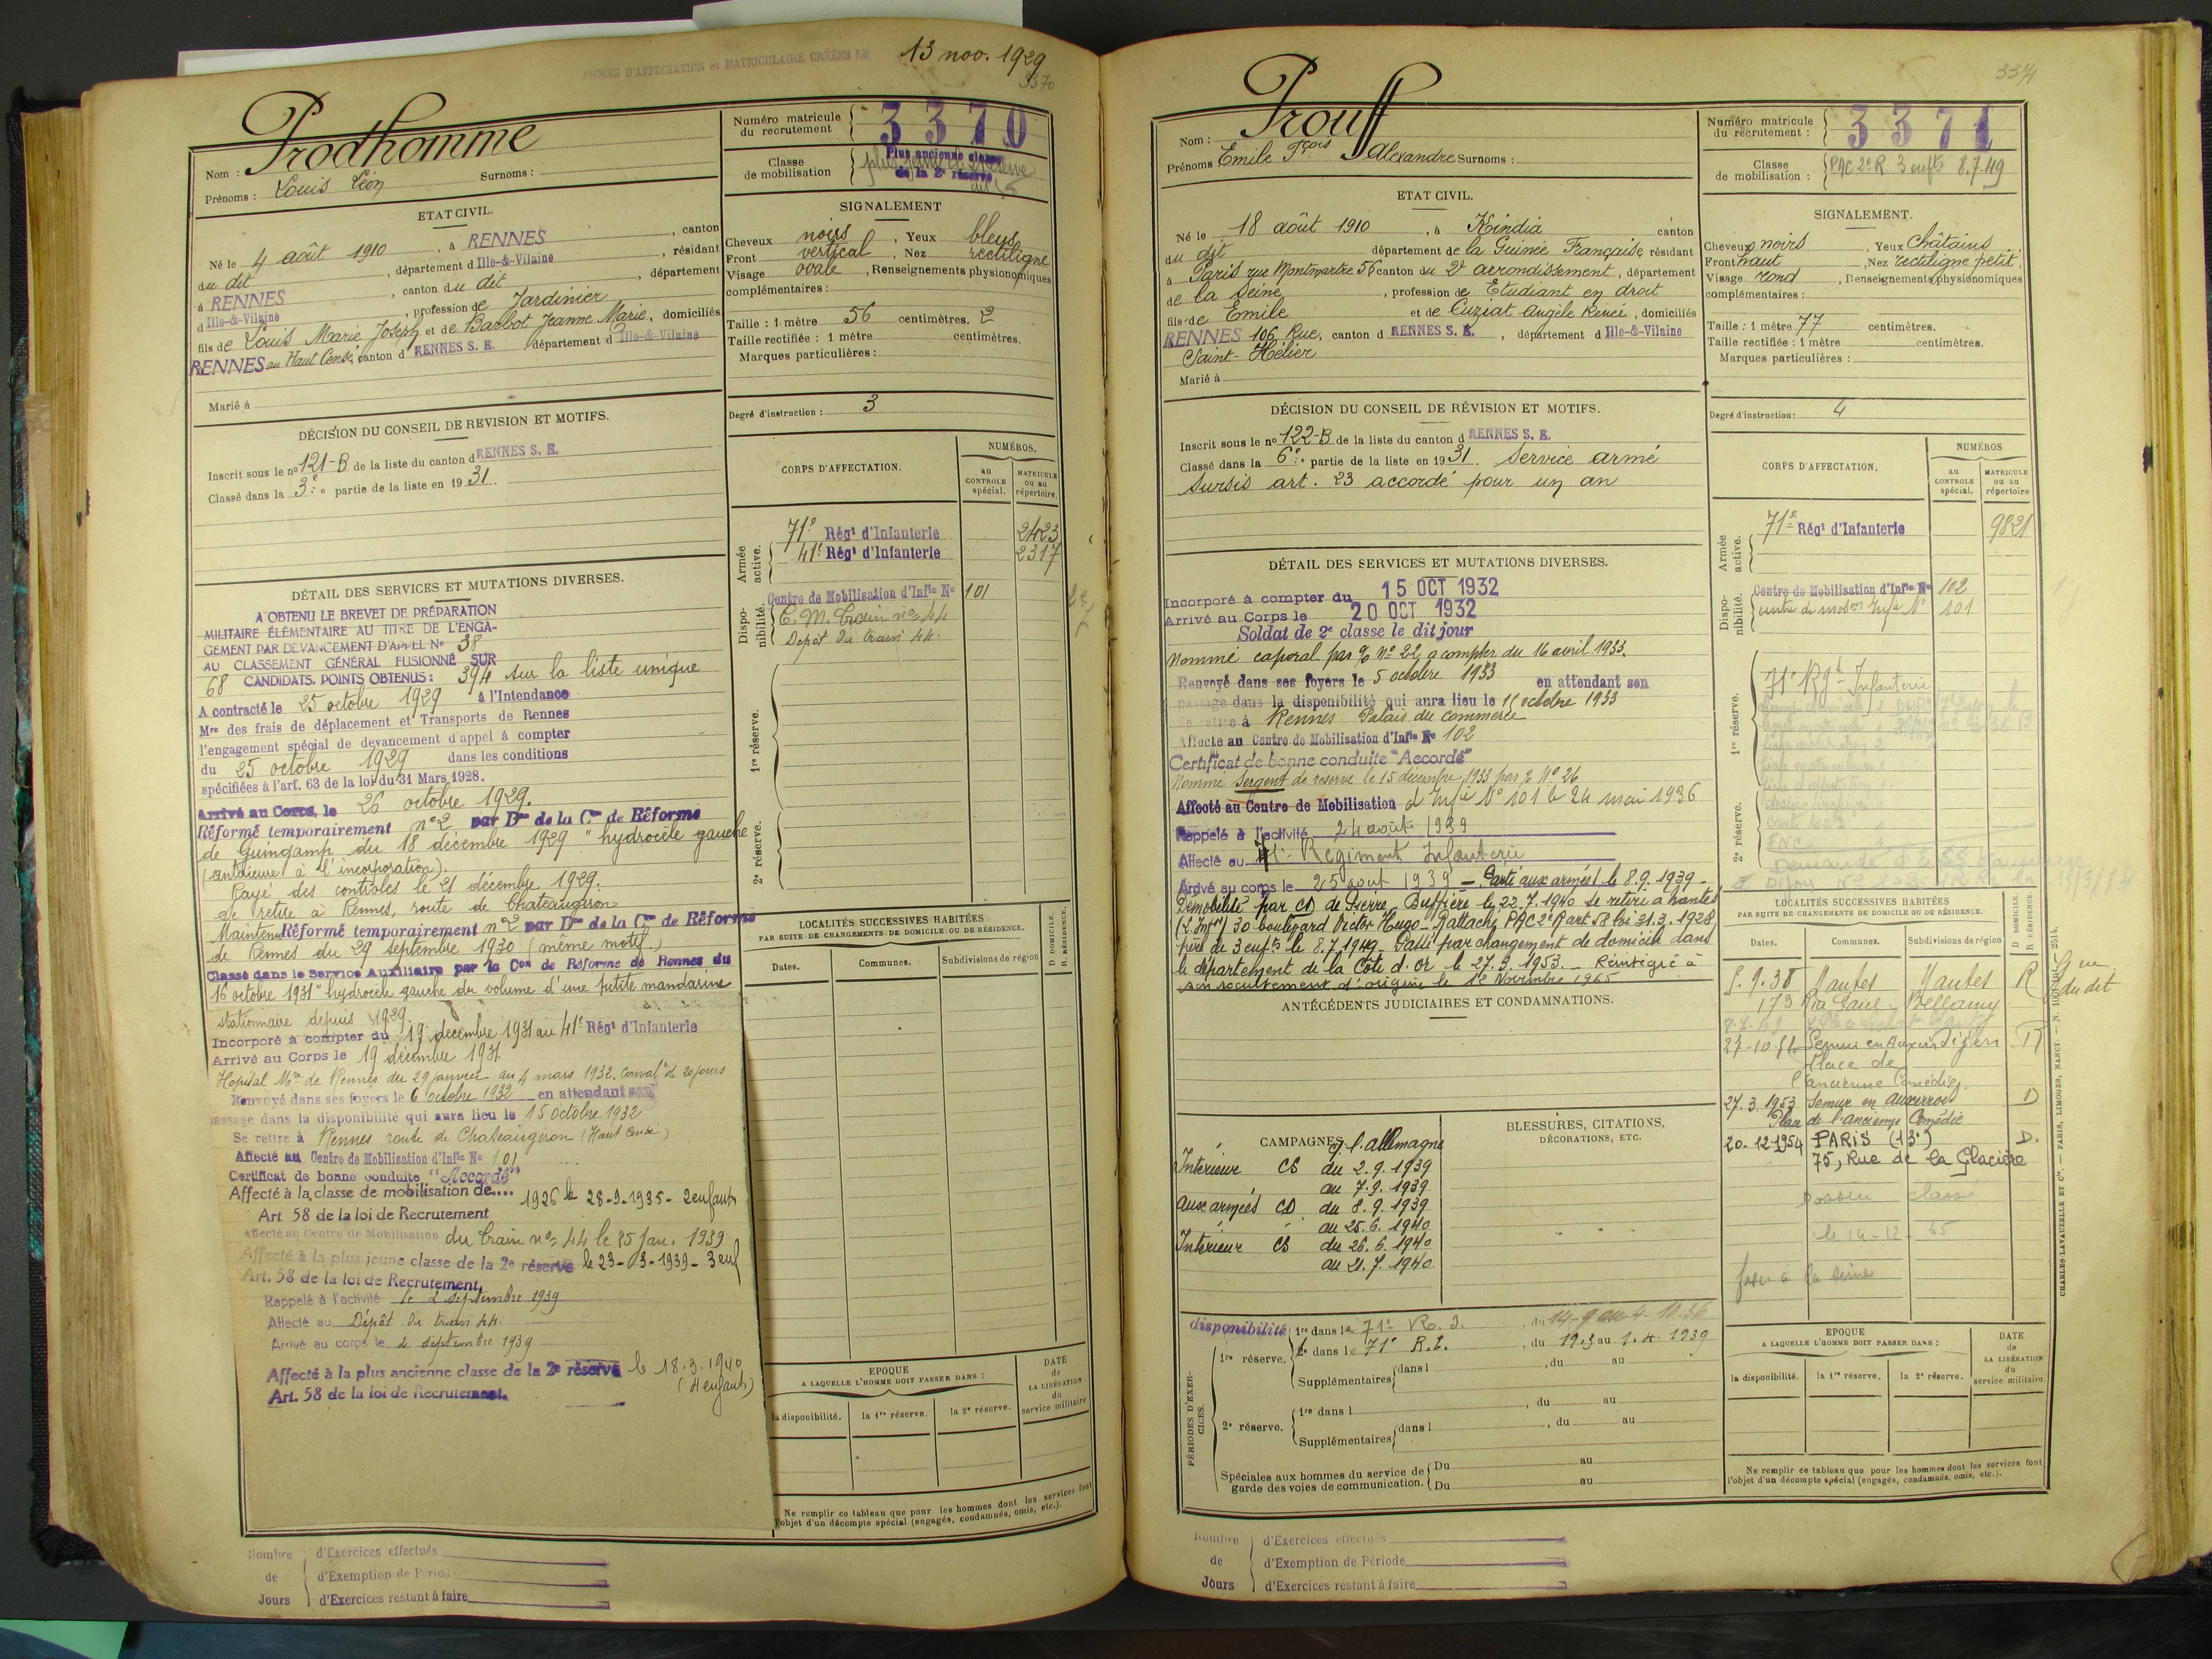 FICHES D'AFFECTATION et MATRICULAIRE CRÉÉES LE 13 nov. 1929
3370
Nom : Prodhomme
Prénoms : Louis Léon Surnoms :
Numéro matricule du recrutement 3370
Classe de mobilisation Plus ancienne classe de la 2e réserve
ETAT CIVIL.
Né le 4 août 1910, à RENNES, canton
du dit, département d Ille-&-Vilaine, résidant
à RENNES, canton du dit, département
d Ille-&-Vilaine, profession de Jardinier
fils de Louis Marie Joseph et de Barbot Jeanne Marie, domiciliés
RENNES au Haut Censé, canton d RENNES S. E. département d Ille-&-Vilaine
Marié à
SIGNALEMENT
Cheveux noirs, Yeux bleus
Front vertical, Nez rectiligne
Visage ovale, Renseignements physionomiques
complémentaires :
Taille : 1 mètre 56 centimètres. 2
Taille rectifiée : 1 mètre centimètres.
Marques particulières :
Degré d'instruction : 3
DÉCISION DU CONSEIL DE REVISION ET MOTIFS.
Inscrit sous le no 121-B de la liste du canton d RENNES S. E.
Classé dans la 3e partie de la liste en 1931.
DÉTAIL DES SERVICES ET MUTATIONS DIVERSES.
A OBTENU LE BREVET DE PRÉPARATION
MILITAIRE ÉLÉMENTAIRE AU TITRE DE L'ENGA-
GEMENT PAR DEVANCEMENT D'APPEL No 38
AU CLASSEMENT GÉNÉRAL FUSIONNÉ SUR
68 CANDIDATS. POINTS OBTENUS : 394 sur la liste unique
A contracté le 25 octobre 1929 à l'Intendance
Mre des frais de déplacement et Transports de Rennes
l'engagement spécial de devancement d'appel à compter
du 25 octobre 1929 dans les conditions
spécifiées à l'art. 63 de la loi du 31 Mars 1928.
Arrivé au Corps, le 26 octobre 1929.
Réformé temporairement no 2 par Don de la Con de Réforme
de Guingamp du 18 décembre 1929 "hydrocèle gauche
(antérieure à l'incorporation).
Rayé des contrôles le 21 décembre 1929.
Se retire à Rennes, route de Chateaugiron
Maintenu Réformé temporairement no 2 par Don de la Con de Réforme
de Rennes du 29 septembre 1930 (même motif.)
Classé dans le Service Auxiliaire par la Con de Réforme de Rennes du
16 octobre 1931 "hydrocèle gauche du volume d'une petite mandarine
stationnaire depuis 1929.
Incorporé à compter du 19 décembre 1931 au 41e Régt d'Infanterie
Arrivé au Corps le 19 décembre 1931
Hopital Mre de Rennes du 29 janvier au 4 mars 1932. Convalce de 20 jours
Renvoyé dans ses foyers le 6 octobre 1932 en attendant son
passage dans la disponibilité qui aura lieu le 15 octobre 1932
Se retire à Rennes route de Chateaugiron (Haut Censé)
Affecté au Centre de Mobilisation d'Infie No 101
Certificat de bonne conduite "Accordé"
Affecté à la classe de mobilisation de.... 1926 le 28-9-1935 - 2 enfants
Art 58 de la loi de Recrutement
Affecté au Centre de Mobilisation du Train no 44 le 25 Jan. 1939
Affecté à la plus jeune classe de la 2e réserve le 23-03-1939 - 3 enf
Art. 58 de la loi de Recrutement.
Rappelé à l'activité le 2 septembre 1939
Affecté au Dépôt du train 44.
Arrivé au corps le 2 septembre 1939
Affecté à la plus ancienne classe de la 2e réserve le 18.3.1940
Art. 58 de la loi de Recrutement. (4 enfants)
CORPS D'AFFECTATION.
NUMÉROS
au CONTROLE spécial.
MATRICULE ou au répertoire.
Armée active.
71e Régt d'Infanterie 2423
41e Régt d'Infanterie 2317
Disponibilité.
Centre de Mobilisation d'Infie No 101
C. M. Train no 44
Dépôt du train 44.
1re réserve.
2e réserve.
LOCALITÉS SUCCESSIVES HABITÉES
PAR SUITE DE CHANGEMENTS DE DOMICILE OU DE RÉSIDENCE.
Dates. Communes. Subdivisions de région D DOMICILE. R. RÉSIDENCE.
EPOQUE
A LAQUELLE L'HOMME DOIT PASSER DANS :
la disponibilité. la 1re réserve. la 2e réserve.
DATE de LA LIBÉRATION du service militaire
Ne remplir ce tableau que pour les hommes dont les services font
l'objet d'un décompte spécial (engagés, condamnés, omis, etc.).
Nombre de Jours
d'Exercices effectués
d'Exemption de Période
d'Exercices restant à faire
3371
Nom : Prouff
Prénoms Emile Fçois Alexandre Surnoms :
Numéro matricule du recrutement : 3371
Classe de mobilisation : PAC 2e R 3 enfts 8.7.49
ETAT CIVIL.
Né le 18 août 1910, à Kindia canton
du dit département de la Guinée Française, résidant
à Paris rue Montmartre 56 canton du 2e arrondissement, département
de la Seine, profession de Etudiant en droit
fils de Emile et de Cuziat Angèle Renée, domiciliés
RENNES 106 Rue, canton d RENNES S. E., département d Ille-&-Vilaine
Saint-Hélier
Marié à
SIGNALEMENT.
Cheveux noirs, Yeux châtains
Front haut, Nez rectiligne petit
Visage rond, Renseignements physionomiques
complémentaires :
Taille : 1 mètre 77 centimètres.
Taille rectifiée : 1 mètre centimètres.
Marques particulières :
Degré d'instruction : 4
DÉCISION DU CONSEIL DE RÉVISION ET MOTIFS.
Inscrit sous le no 122-B de la liste du canton d RENNES S. E.
Classé dans la 6e partie de la liste en 1931. Service armé
Sursis art. 23 accordé pour un an
DÉTAIL DES SERVICES ET MUTATIONS DIVERSES.
Incorporé à compter du 15 OCT 1932
Arrivé au Corps le 20 OCT 1932
Soldat de 2e classe le dit jour
Nommé caporal par % No 22 à compter du 16 avril 1933.
Renvoyé dans ses foyers le 5 octobre 1933 en attendant son
passage dans la disponibilité qui aura lieu le 15 octobre 1933
Se retire à Rennes Palais du Commerce
Affecté au Centre de Mobilisation d'Infie No 102
Certificat de bonne conduite "Accordé"
Nommé Sergent de réserve le 15 décembre 1933 par % No 26
Affecté au Centre de Mobilisation d'Infie No 101 le 24 mai 1936
Rappelé à l'activité 24 août 1939
Affecté au 71e Régiment Infanterie
Arrivé au corps le 25 août 1939 - Parti aux armées le 8.9.1939 -
Démobilisé par CD de Pierre Buffière le 22.7.1940 se retire à Nantes
(L. Infre) 30 boulevard Victor Hugo - Rattaché PAC 2e R art 58 loi 31.3.1928
père de 3 enfts le 8.7.1949 - Passé par changement de domicile dans
le département de la Côte d'Or le 27.3.1953. - Réintégré à
son recrutement d'origine le 12 Novembre 1965
ANTÉCÉDENTS JUDICIAIRES ET CONDAMNATIONS.
CAMPAGNES
c. l'allemagne
Intérieur CS du 2.9.1939
au 7.9.1939
Aux armées CD du 8.9.1939
au 25.6.1940
Intérieur CS du 26.6.1940
au 21.7.1940
BLESSURES, CITATIONS,
DÉCORATIONS, ETC.
CORPS D'AFFECTATION.
NUMÉROS
au CONTROLE spécial.
MATRICULE ou au répertoire
Armée active.
71e Régt d'Infanterie 9821
Disponibilité.
Centre de Mobilisation d'Infie No 102
Centre de mobon Infie No 101
1re réserve.
71e Rgt Infanterie
2e réserve.
LOCALITÉS SUCCESSIVES HABITÉES
PAR SUITE DE CHANGEMENTS DE DOMICILE OU DE RÉSIDENCE.
Dates. Communes. Subdivisions de région D DOMICILE. R RÉSIDENCE.
5.9.38 Nantes Nantes R
173 Rue Paul Bellamy
27-10-51 Semur en Auxois Dijon D
Place de
l'ancienne Comédie.
27.3.1953 Semur en Auxerrois D
Place de l'ancienne Comédie
20.12.1954 PARIS (13e) D.
75, Rue de la Glacière
Dossier classé
le 14-12-65
PÉRIODES D'EXERCICES.
disponibilité 1re dans le 71e R. I., du 14-9 au 4.10.36
1re réserve. 2e dans le 71e R. I., du 12.3 au 1.4.1939
Supplémentaires dans l, du au
2e réserve. 1re dans l, du au
Supplémentaires dans l, du au
Spéciales aux hommes du service de garde des voies de communication. Du au
Du au
EPOQUE
A LAQUELLE L'HOMME DOIT PASSER DANS :
la disponibilité. la 1re réserve. la 2e réserve.
DATE de LA LIBÉRATION du service militaire
Ne remplir ce tableau que pour les hommes dont les services font
l'objet d'un décompte spécial (engagés, condamnés, omis, etc.).
CHARLES-LAVAUZELLE ET Cie. — PARIS, LIMOGES, NANCY
Nombre de Jours
d'Exercices effectués
d'Exemption de Période
d'Exercices restant à faire